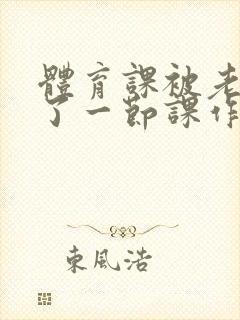 體育課被老
了一節課作
東風浩